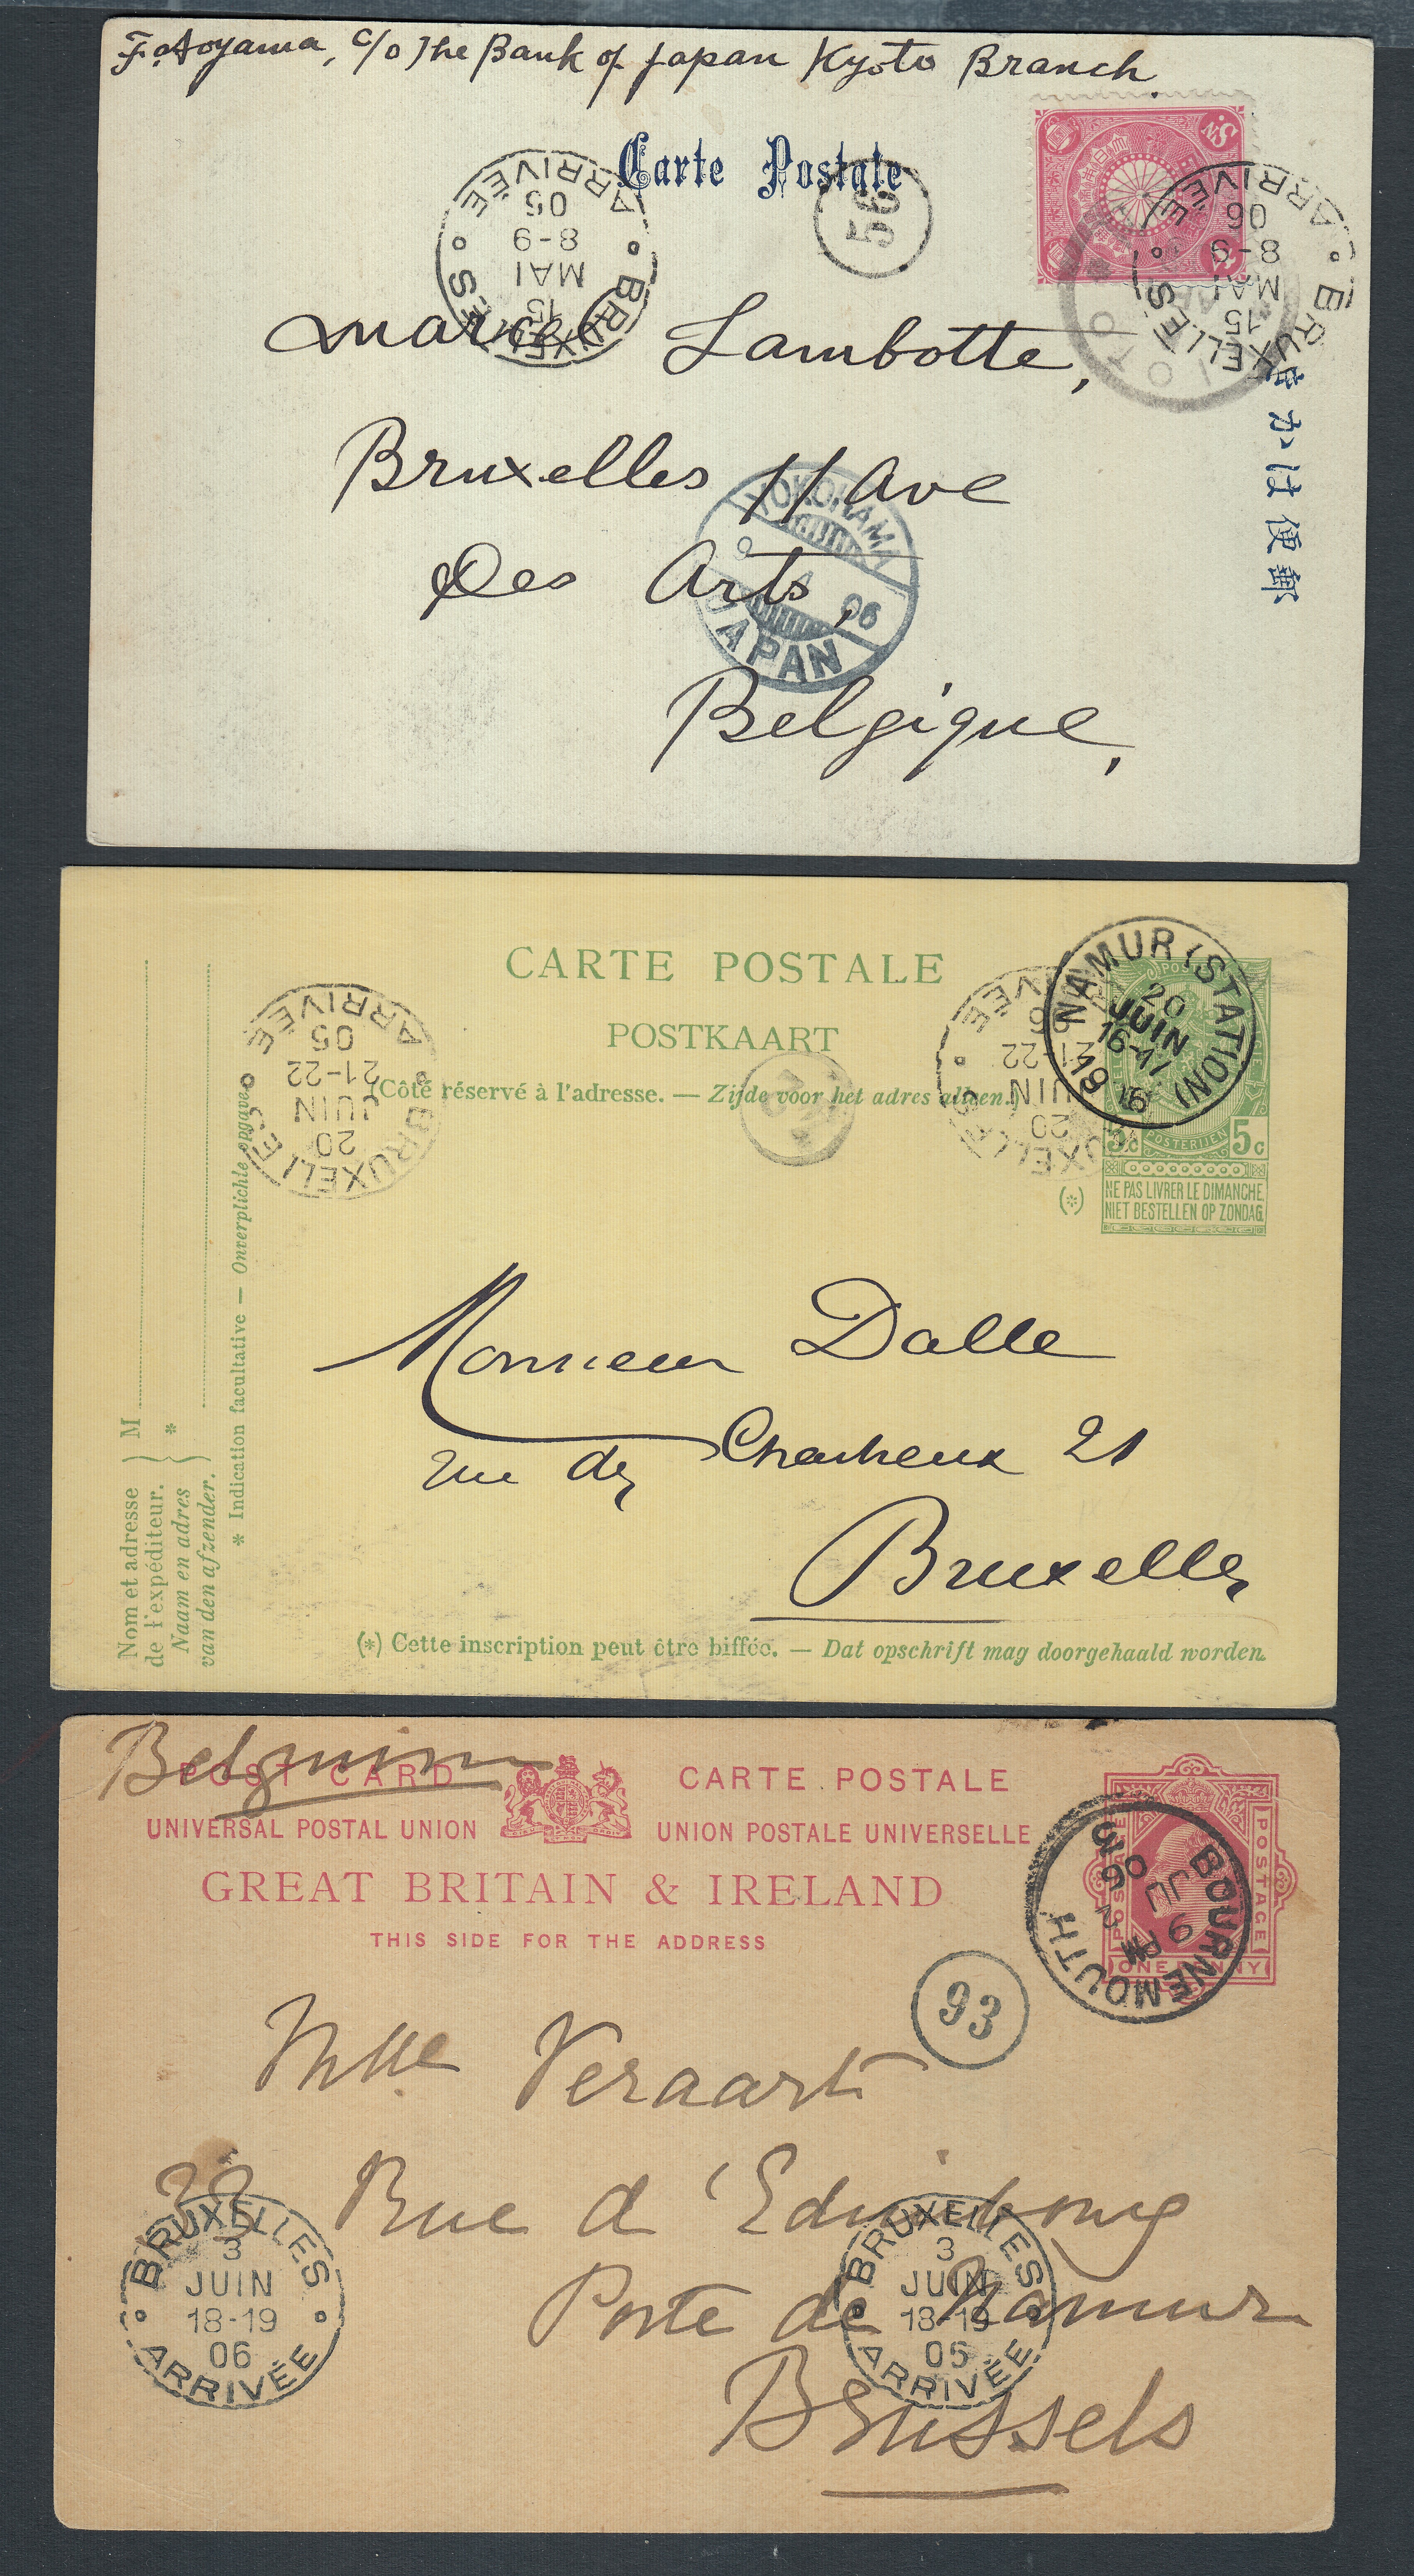 F. Aoyama, c/o The Bank of Japan Kyoto Branch
Carte Postale
ARRIVÉE
05
8-9
MAI
15
BRUXELLES
56
ARRIVÉE
06
8-9
MAI
15
BRUXELLES
Marcel Lambotte,
Bruxelles 11 Ave
Des Arts,
Belgique,
YOKOHAMA
06
JAPAN
郵便はかき
CARTE POSTALE
POSTKAART
(Côté réservé à l'adresse. — Zijde voor het adres alleen.)
ARRIVÉE
05
21-22
JUIN
20
BRUXELLES
ARRIVÉE
06
21-22
JUIN
20
BRUXELLES
NAMUR (STATION)
20
JUIN
16-17
1906
5c POSTERIJEN 5c
(*)
NE PAS LIVRER LE DIMANCHE.
NIET BESTELLEN OP ZONDAG.
Monsieur Dalle
rue des 21
Bruxelles
Nom et adresse
de l'expéditeur.
M
Naam en adres
van den afzender.
*
* Indication facultative — Onverplichte opgave
(*) Cette inscription peut être biffée. — Dat opschrift mag doorgehaald worden.
Belgium
POST CARD CARTE POSTALE
UNIVERSAL POSTAL UNION UNION POSTALE UNIVERSELLE
GREAT BRITAIN & IRELAND
THIS SIDE FOR THE ADDRESS
POSTAGE
POSTAGE
ONE PENNY
BOURNEMOUTH
9 PM
JU 2
06
93
Mlle Veraart
22 Rue d'Edimbourg
Porte de Namur
Brussels
BRUXELLES
3
JUIN
18-19
06
ARRIVÉE
BRUXELLES
3
JUIN
18-19
05
ARRIVÉE